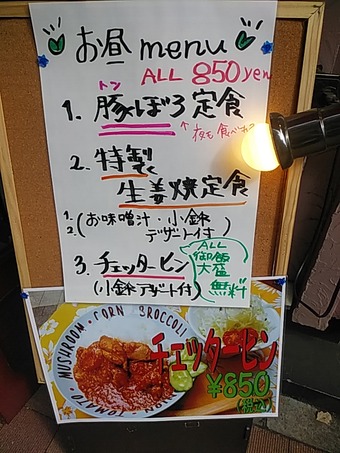 お昼 menu
ALL 850yen
トン
1. 豚ぼろ定食
↑夜も食べれる
2. 特製
生姜焼定食
1.
2. (お味噌汁・小鉢
デザート付)
3. チェッターヒン
(小鉢デザート付)
ALL
御飯
大盛
無料
MUSHROOM・CORN BROCCOLI
CORN・TOMATO
チェッターヒン
¥850
(税込)